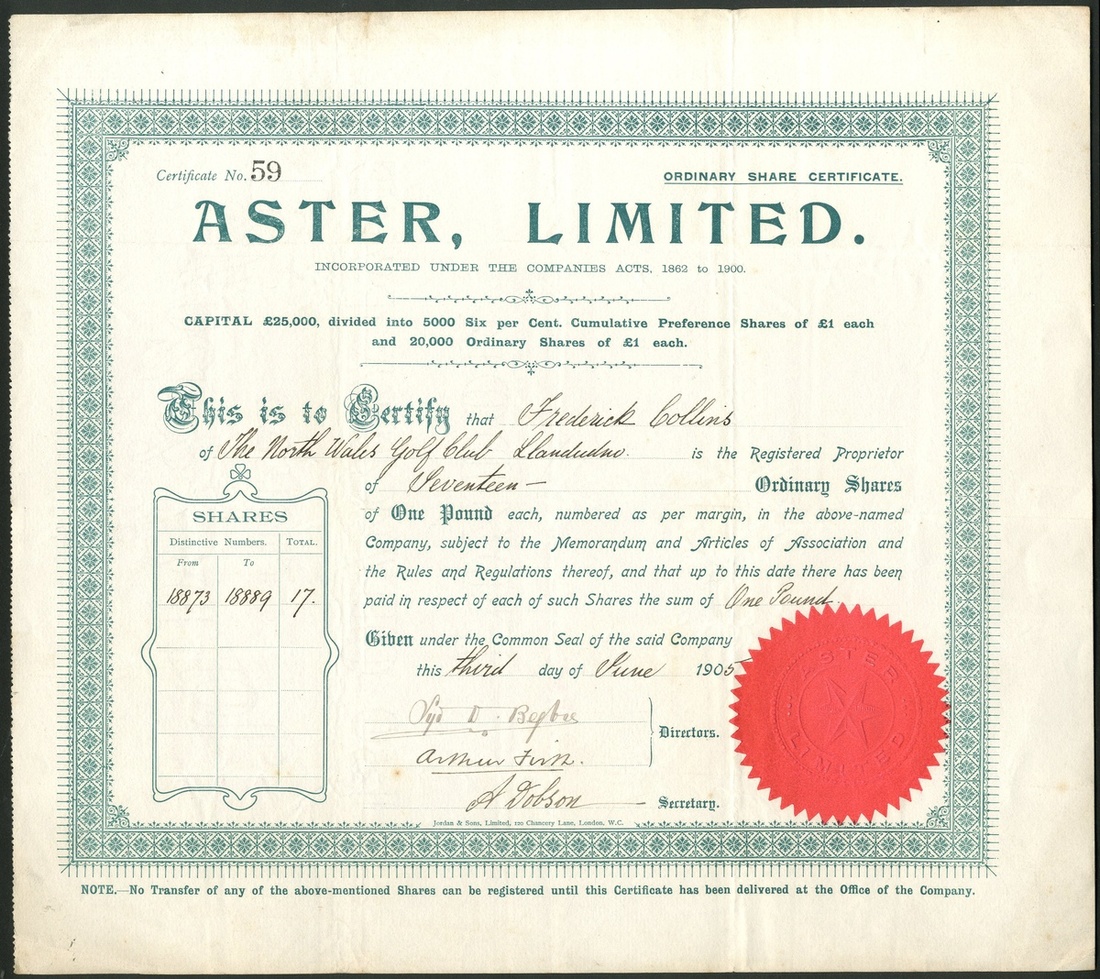 Certificate No. 59
ORDINARY SHARE CERTIFICATE.
ASTER, LIMITED.
INCORPORATED UNDER THE COMPANIES ACTS, 1862 to 1900.
CAPITAL £25,000, divided into 5000 Six per Cent. Cumulative Preference Shares of £1 each
and 20,000 Ordinary Shares of £1 each.
This is to Certify that Frederick Collins
of The North Wales Golf Club Llandudno. is the Registered Proprietor
of Seventeen — Ordinary Shares
of One Pound each, numbered as per margin, in the above-named
Company, subject to the Memorandum and Articles of Association and
the Rules and Regulations thereof, and that up to this date there has been
paid in respect of each of such Shares the sum of One Pound
SHARES
Distinctive Numbers. TOTAL.
From To
18873 18889 17.
Given under the Common Seal of the said Company
this third day of June 1905
Syd D. Begbie
Arthur Firth.
Directors.
A Dobson
Secretary.
ASTER
LIMITED
Jordan & Sons, Limited, 120 Chancery Lane, London, W.C.
NOTE.—No Transfer of any of the above-mentioned Shares can be registered until this Certificate has been delivered at the Office of the Company.